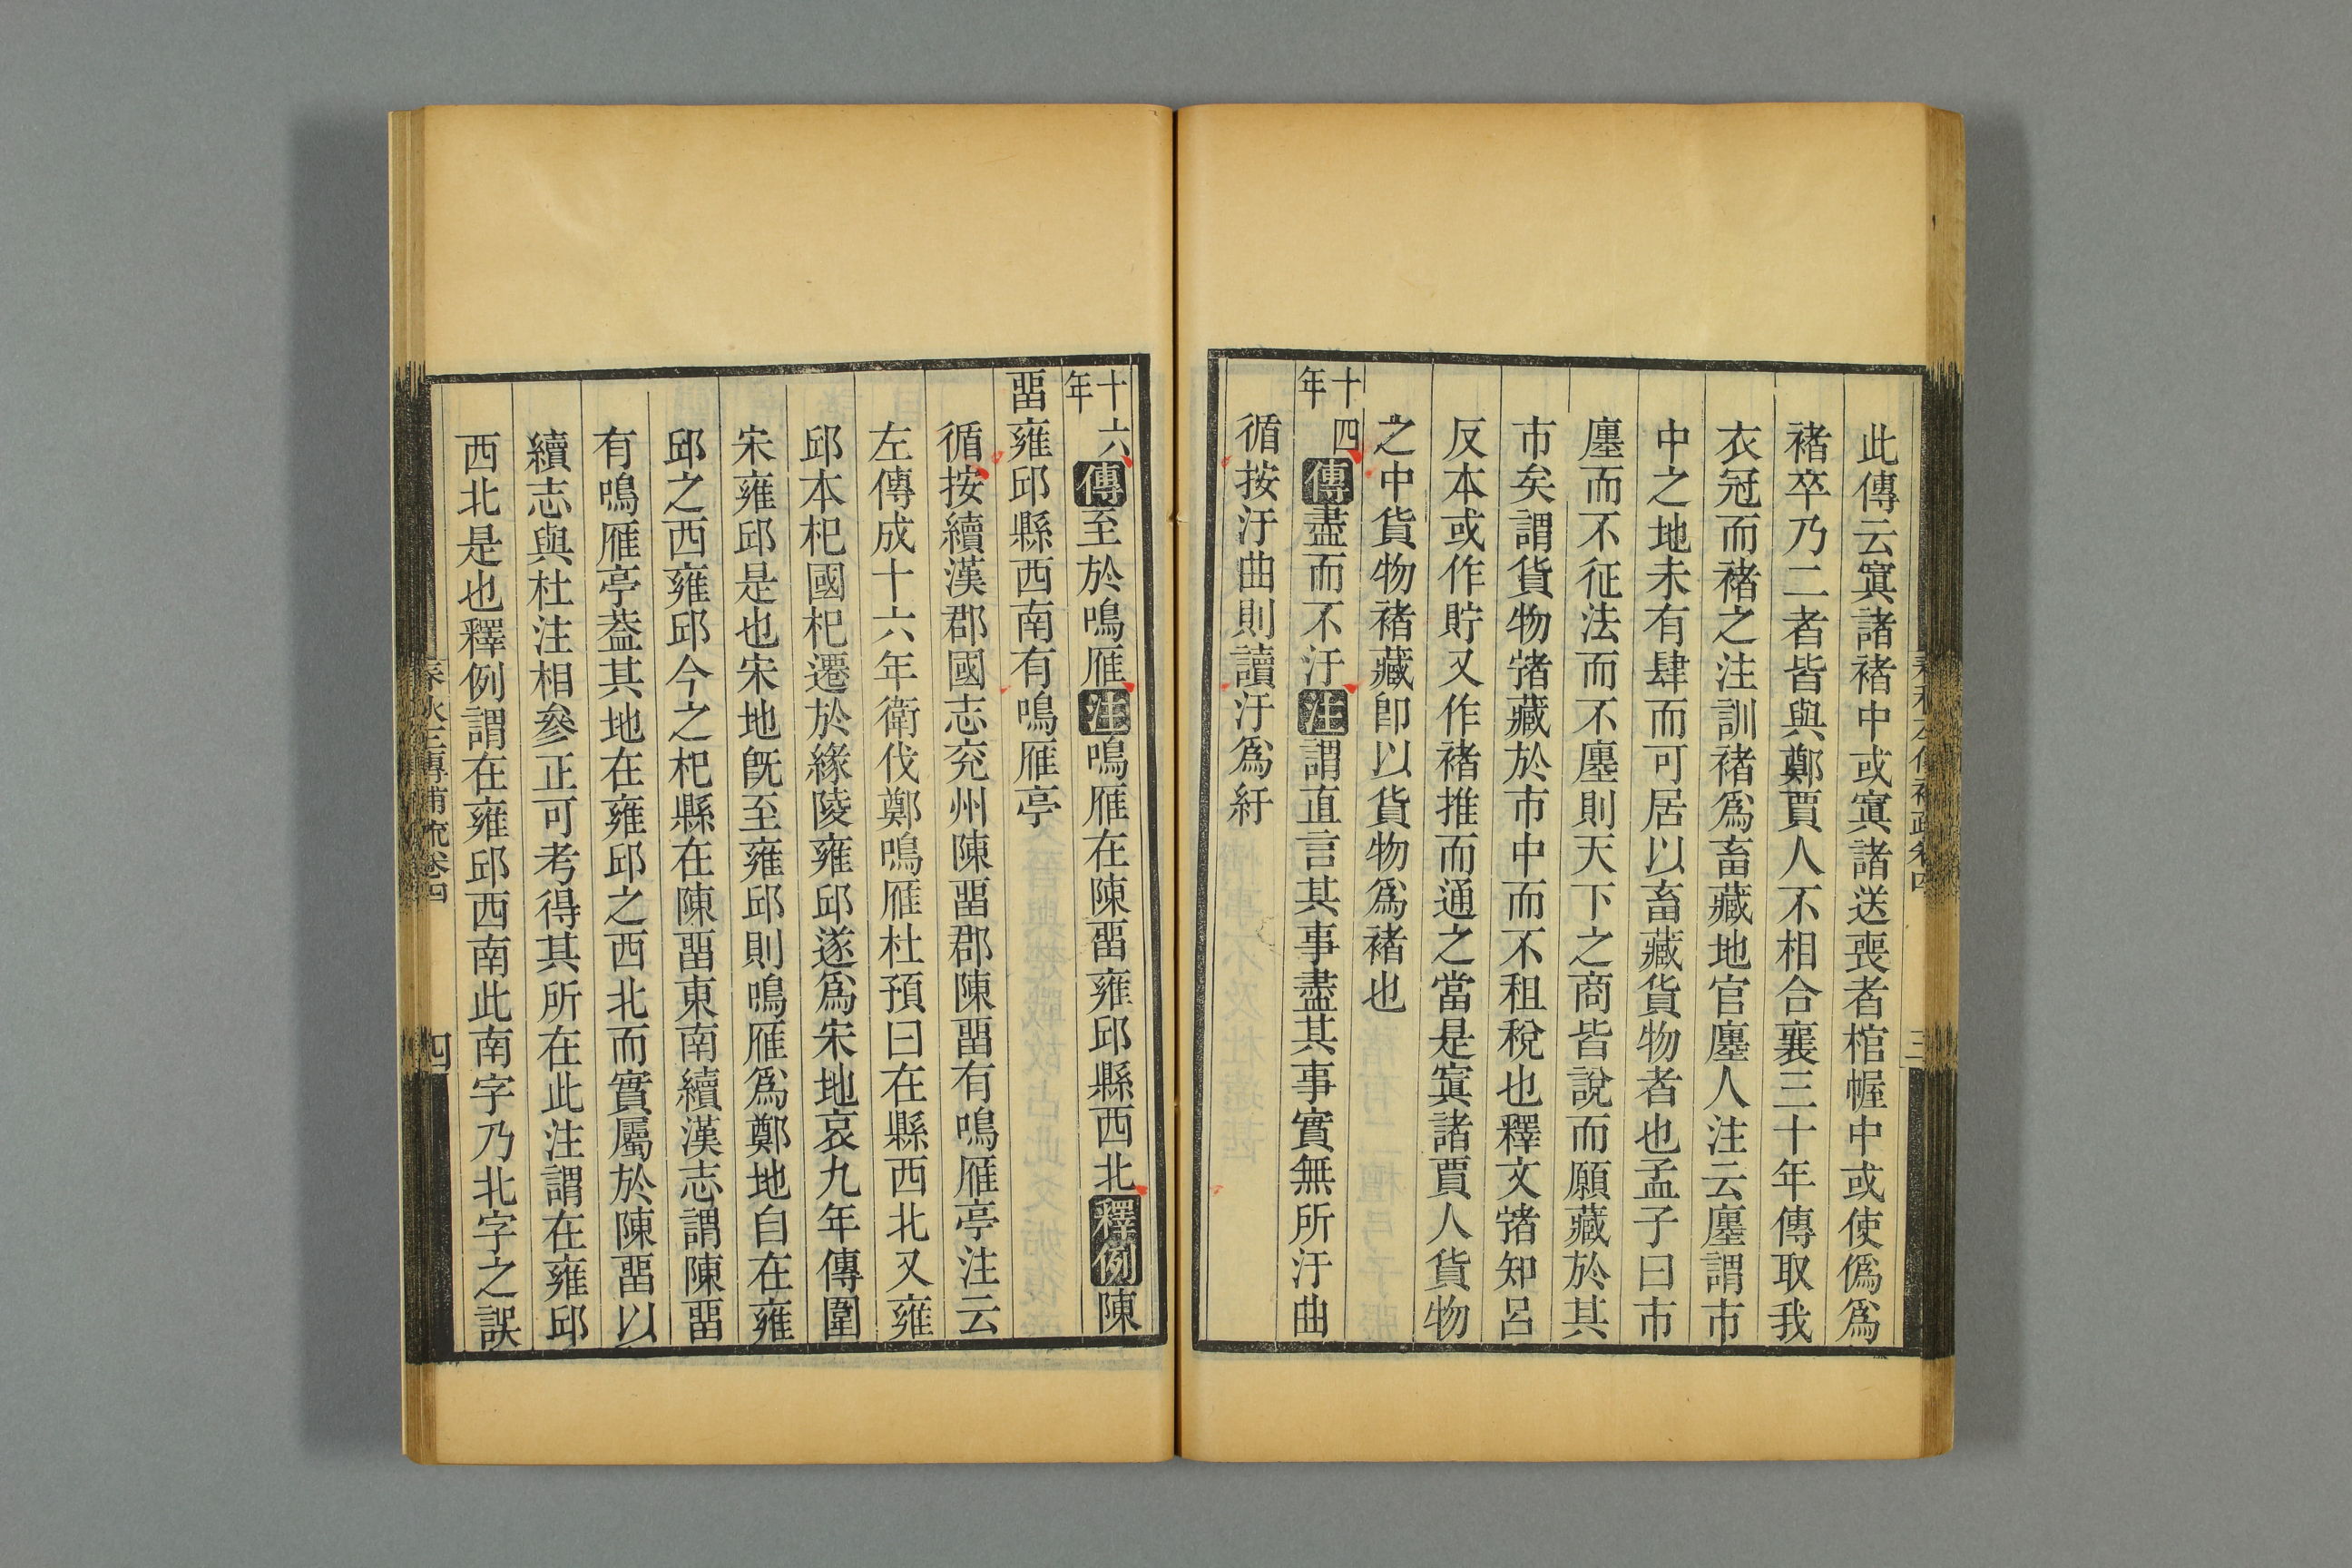 此傳云寘諸褚中或寘諸送喪者棺幄中或使僞爲
褚卒乃二者皆與鄭賈人不相合襄三十年傳取我
衣冠而褚之注訓褚爲畜藏地官廛人注云廛謂市
中之地未有肆而可居以畜藏貨物者也孟子曰市
廛而不征法而不廛則天下之商皆說而願藏於其
市矣謂貨物㣥藏於市中而不租稅也釋文㣥知呂
反本或作貯又作褚推而通之當是寘諸賈人貨物
之中貨物褚藏卽以貨物爲褚也
十四年傳盡而不汙注謂直言其事盡其事實無所汙曲
循按汙曲則讀汙爲紆
十六年傳至於鳴雁注鳴雁在陳畱雍邱縣西北釋例陳
畱雍邱縣西南有鳴雁亭
循按續漢郡國志兖州陳畱郡陳畱有鳴雁亭注云
左傳成十六年衛伐鄭鳴雁杜預曰在縣西北又雍
邱本杞國杞遷於緣陵雍邱遂爲宋地哀九年傳圍
宋雍邱是也宋地旣至雍邱則鳴雁爲鄭地自在雍
邱之西雍邱今之杞縣在陳畱東南續漢志謂陳畱
有鳴雁亭葢其地在雍邱之西北而實屬於陳畱以
續志與杜注相參正可考得其所在此注謂在雍邱
西北是也釋例謂在雍邱西南此南字乃北字之誤
春秋左傳補疏卷四
四